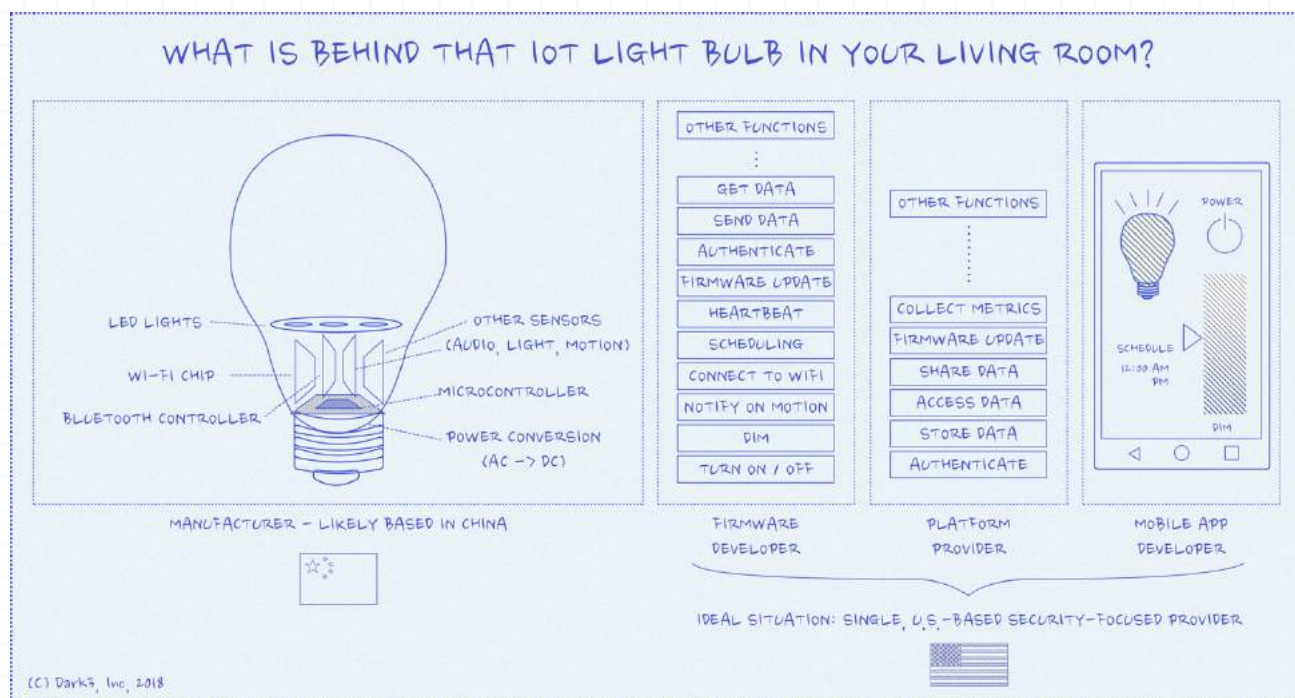 WHAT IS BEHIND THAT IOT LIGHT BULB IN YOUR LIVING ROOM?
LED LIGHTS
WI-FI CHIP
BLUETOOTH CONTROLLER
OTHER SENSORS
(AUDIO, LIGHT, MOTION)
MICROCONTROLLER
POWER CONVERSION
(AC -> DC)
MANUFACTURER - LIKELY BASED IN CHINA
OTHER FUNCTIONS
GET DATA
SEND DATA
AUTHENTICATE
FIRMWARE UPDATE
HEARTBEAT
SCHEDULING
CONNECT TO WIFI
NOTIFY ON MOTION
DIM
TURN ON / OFF
FIRMWARE
DEVELOPER
OTHER FUNCTIONS
COLLECT METRICS
FIRMWARE UPDATE
SHARE DATA
ACCESS DATA
STORE DATA
AUTHENTICATE
PLATFORM
PROVIDER
POWER
SCHEDULE
12:00 AM
PM
DIM
MOBILE APP
DEVELOPER
IDEAL SITUATION: SINGLE, U.S.-BASED SECURITY-FOCUSED PROVIDER
(C) Dark3, Inc, 2018